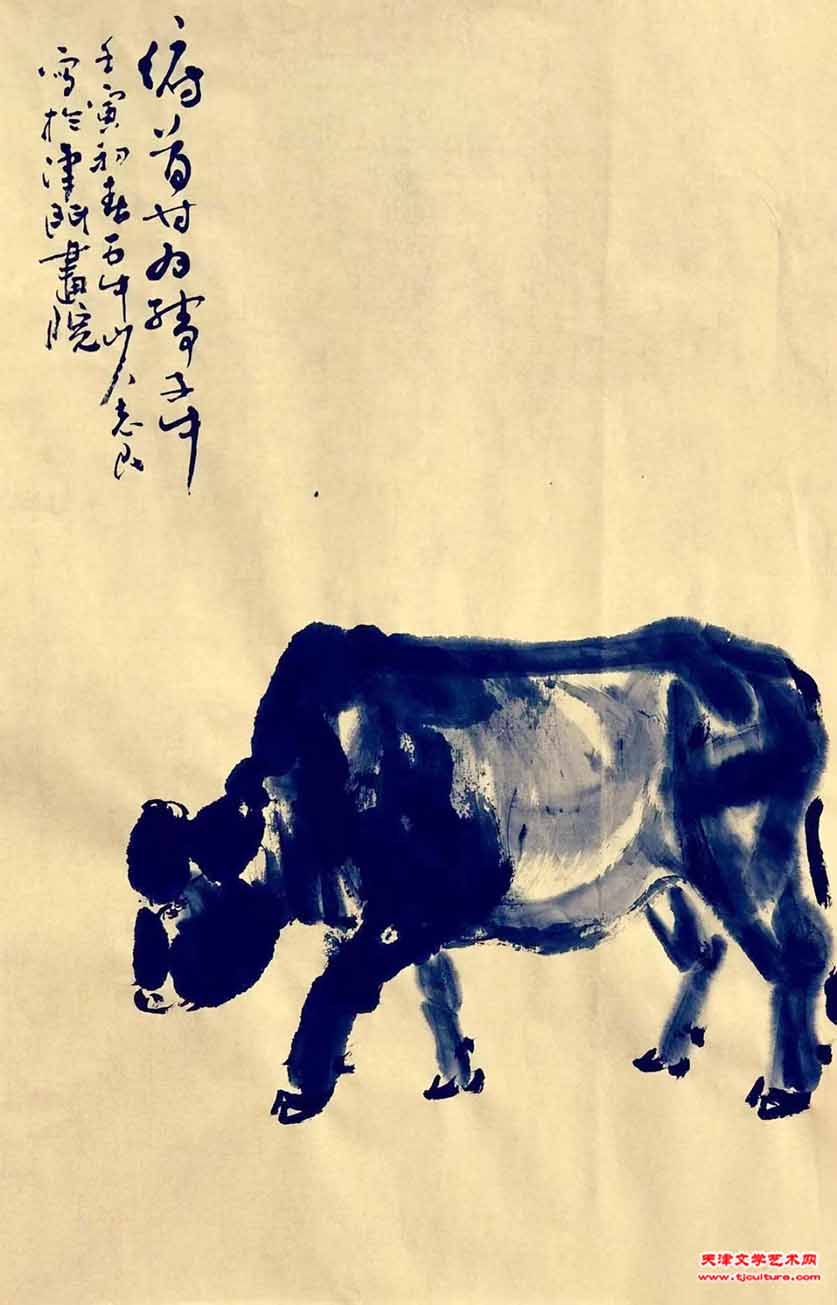 俯首甘为孺子牛
壬寅初春石牛山人志良
寫於津門畫院
天津文学艺术网
www.tjculture.com